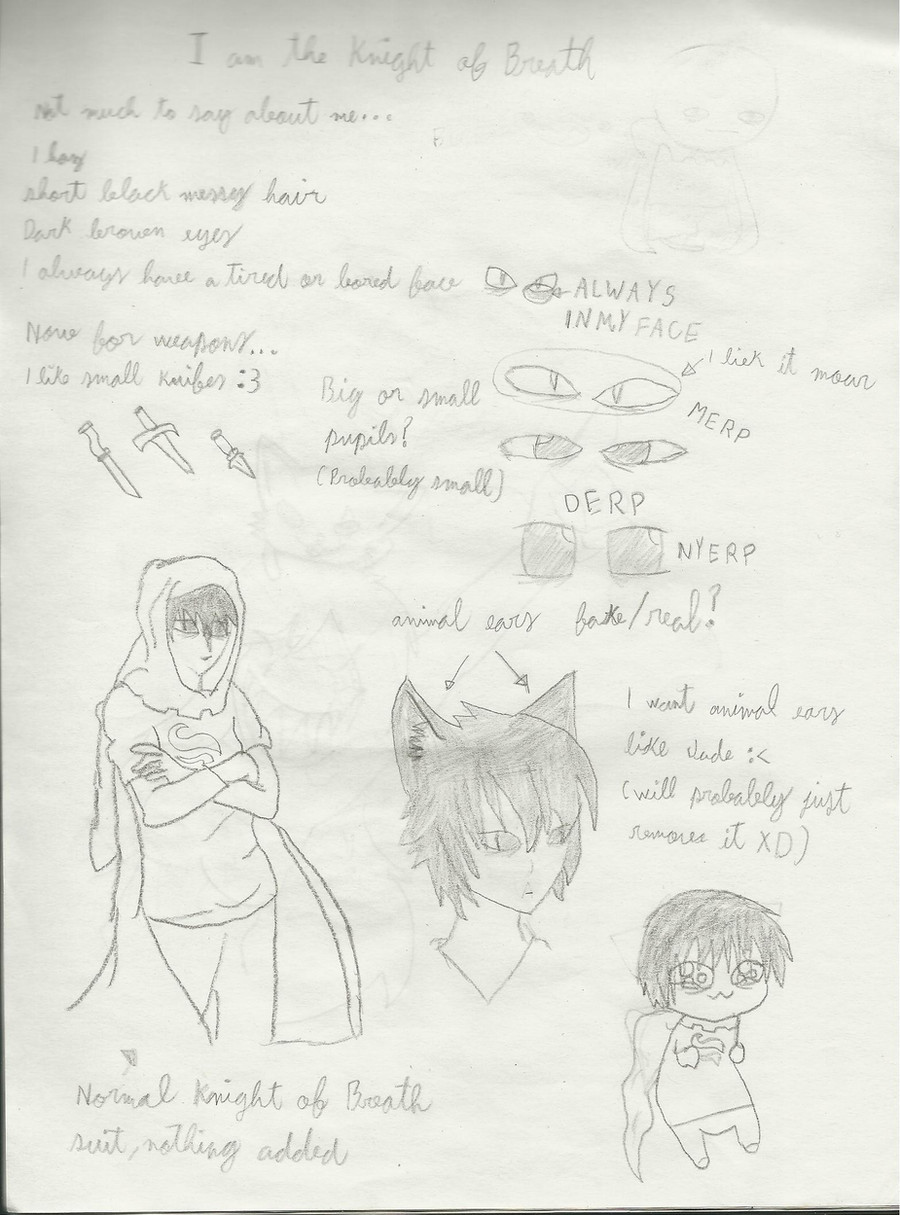 I am the Knight of Breath
Not much to say about me...
I hav
short black messy hair
Dark brown eyes
I always have a tired or bored face
ALWAYS
IN MY FACE
Now for weapons...
I like small knifes :3
Big or small
pupils?
(Probably small)
I liek it moar
MERP
DERP
NYERP
animal ears fake/real?
I want animal ears
like Jade :<
(will probably just
remove it XD)
Normal Knight of Breath
suit, nothing added